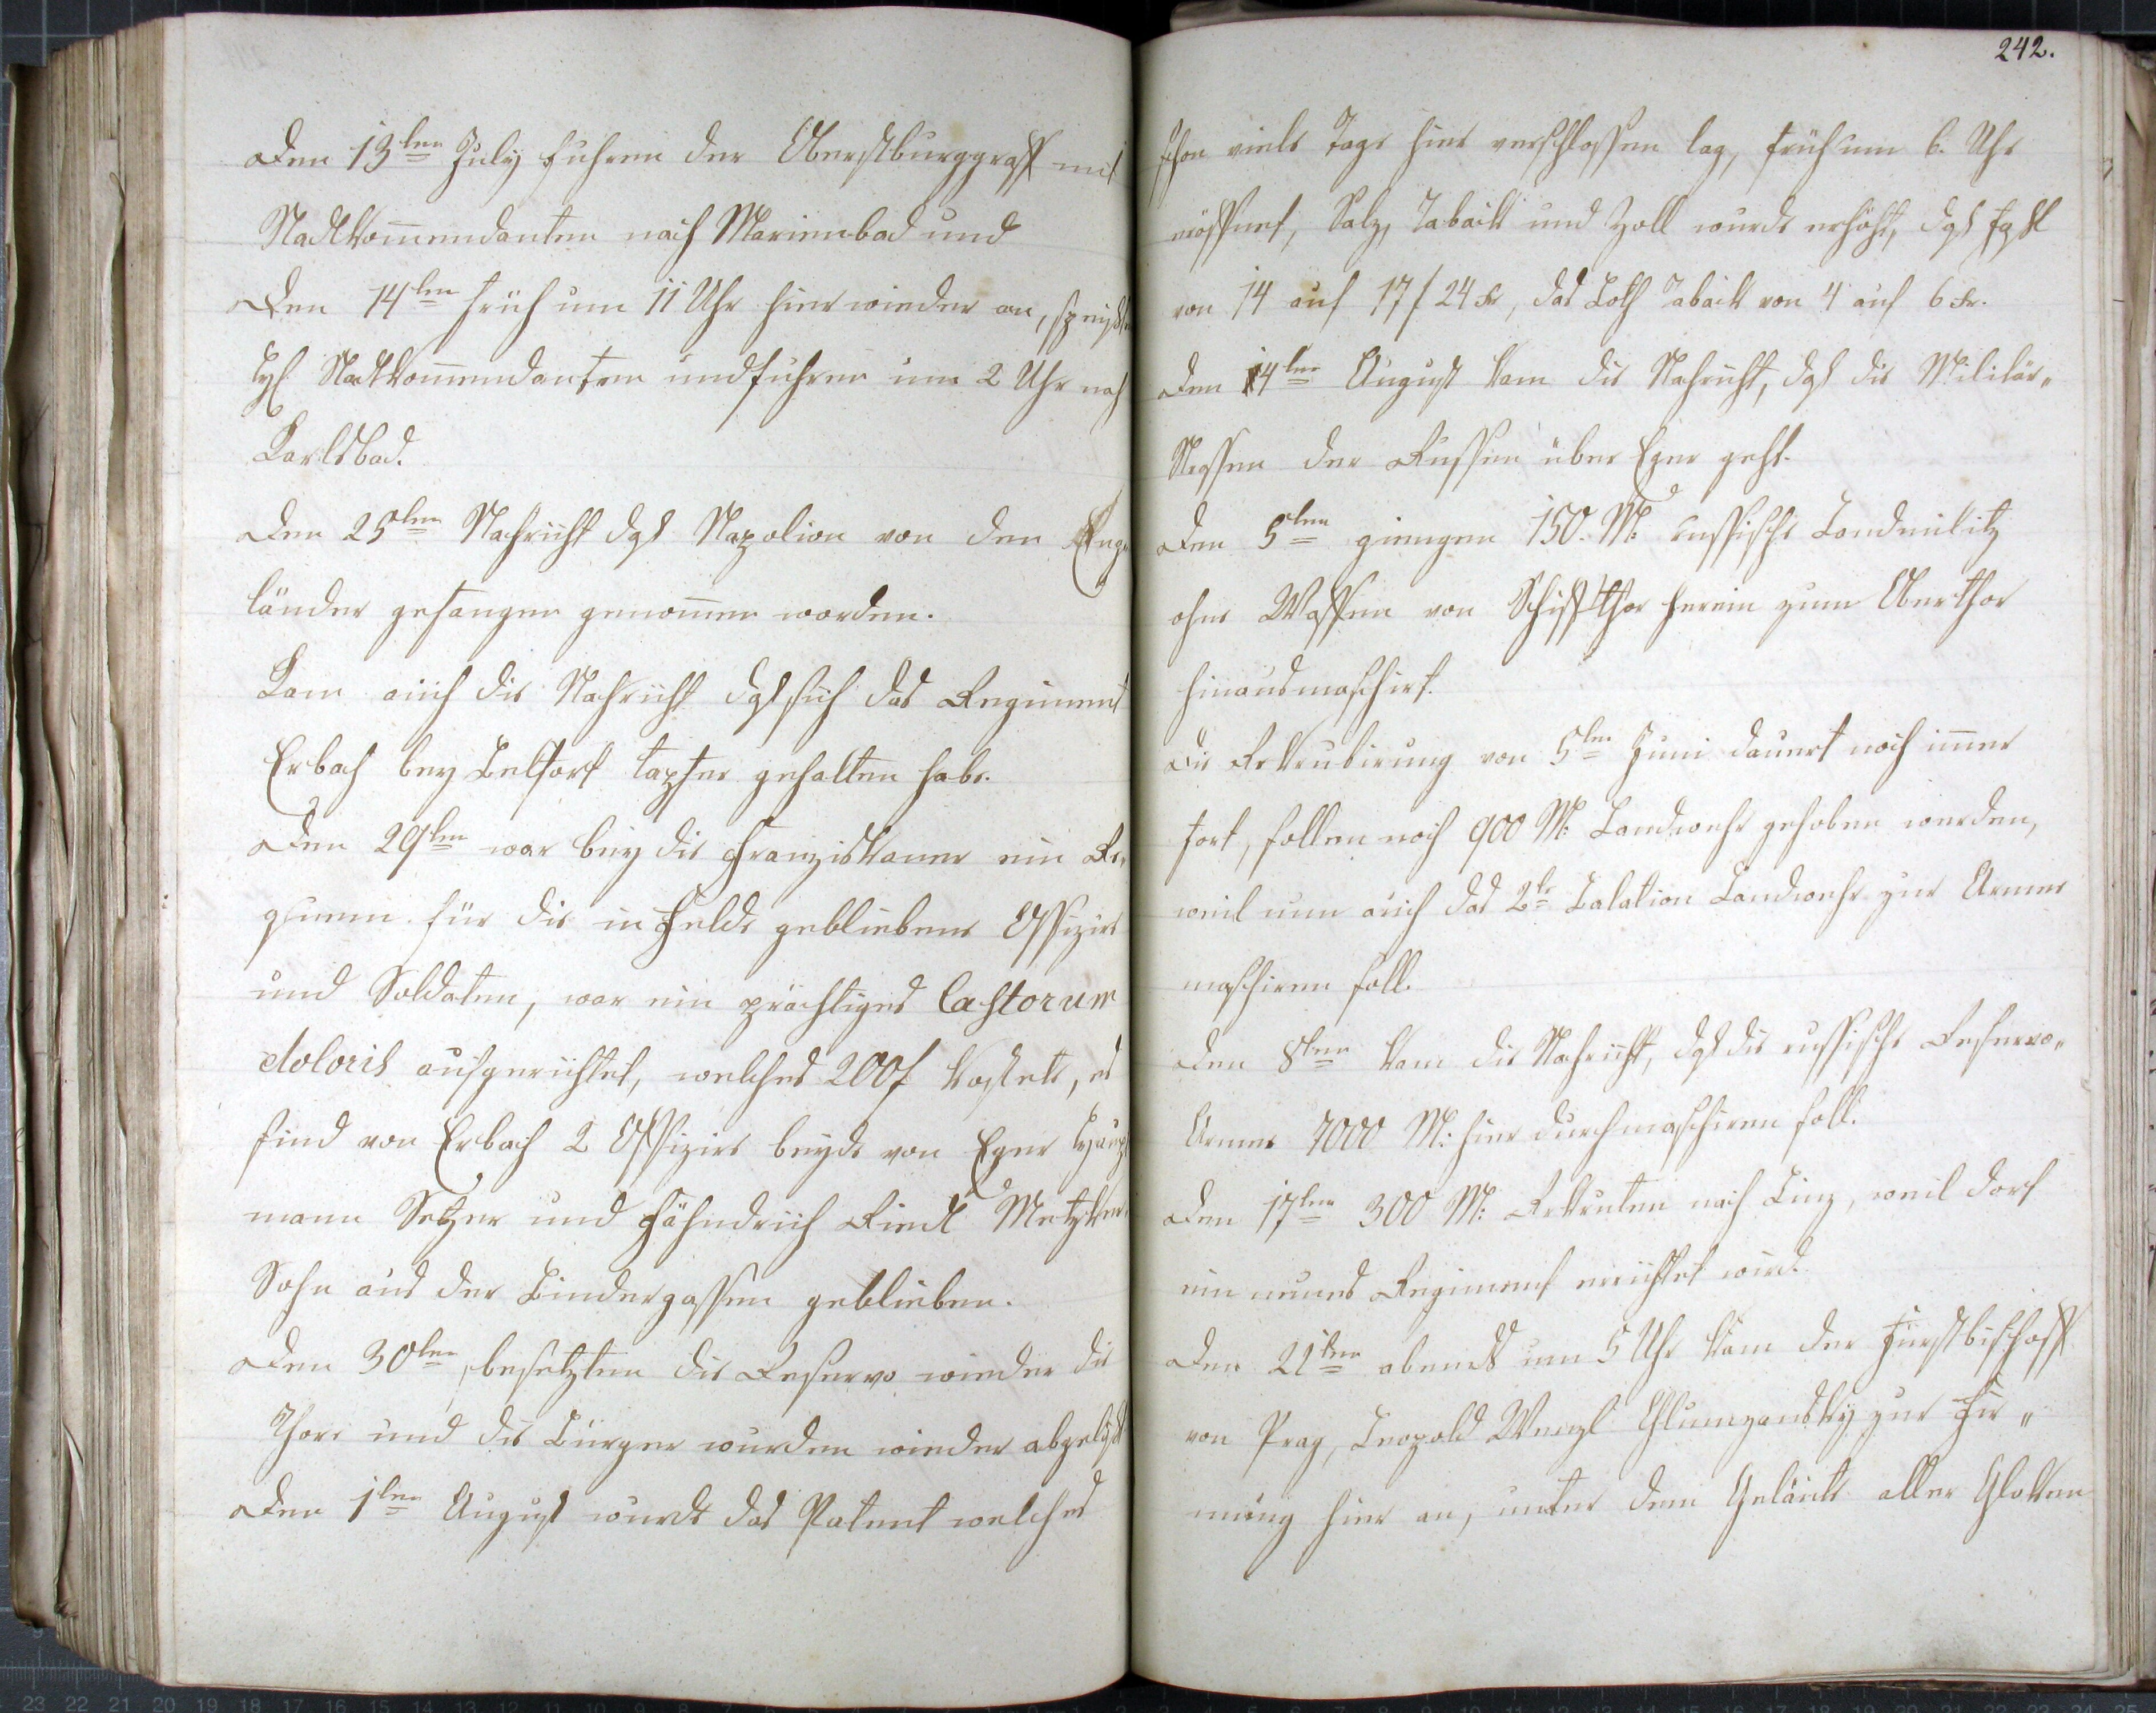 Den 13ten July fuhren der Oberstburggraff mit
Stadtkom̄endanten nach Marienbad und
Den 14ten früh um 11 Uhr hier wieder an, speisten
Stadtkom̄endanten und fuhren um 2 Uhr nach
Karlsbad.
Den 25ten Nachricht dß Napolion von den Eng„
länder gefangen genom̄en worden.
Kam auch die Nachricht dß sich das Regiment
Erbach bey Belfort tapfer gehalten habe.
Den 29ten war bey die Franziskaner ein Re„
quiem für die in Felde gebliebene Offizirs
und Soldaten, war ein prächtiges Castorum
doloris aufgerichtet, welches 200f kostete, es
sind von Erbach 2 Offizirs beyde von Eger Haupt
mann Setzer und Fähndrich Riedl Metzker„
Sohn aus der Bindergassen geblieben.
Den 30ten, besetzten die Reservo wieder die
Thore und die Bürger wurden wieder abgelöst
Den 1ten August wurde das Patent welches
242.
schon viele Tage hier verschlossen lag, früh um 6. Uhr
eröffnet, Salz, Taback und Zoll wurde erhöht, dß
von 14 auf 17f 24 xr, das Loth Taback von 4 auf 6 xr.
Den 4ten August kam die Nachricht, dß die Militär„
Strassen der Russen über Eger geht.
Den 5ten giengen 150. M: russische Landmilitz
ohne Waffen von Schiffthor herein zum Oberthor
hinausmaschirt.
Die Rekrutirung von 5ten Juni dauert noch im̄er
fort, sollen noch 900 M: Landwehr gehoben werden,
weil nun auch das 2te Balation Landwehr zur Armee
maschiren soll.
Den 8ten kam die Nachricht, dß die russische Reservo„
Armee 7000 M: hier durchmaschiren soll.
Den 17ten 300 M: Rekruten nach Linz, weil dort
ein neues Regiment errichtet wird.
Den 21ten abends um 5 Uhr kam der Fürstbischoff
von Prag, Leopold Wenzl Chlumzansky zur Fir„
mung hier an, unter dem Geläute aller Glocken